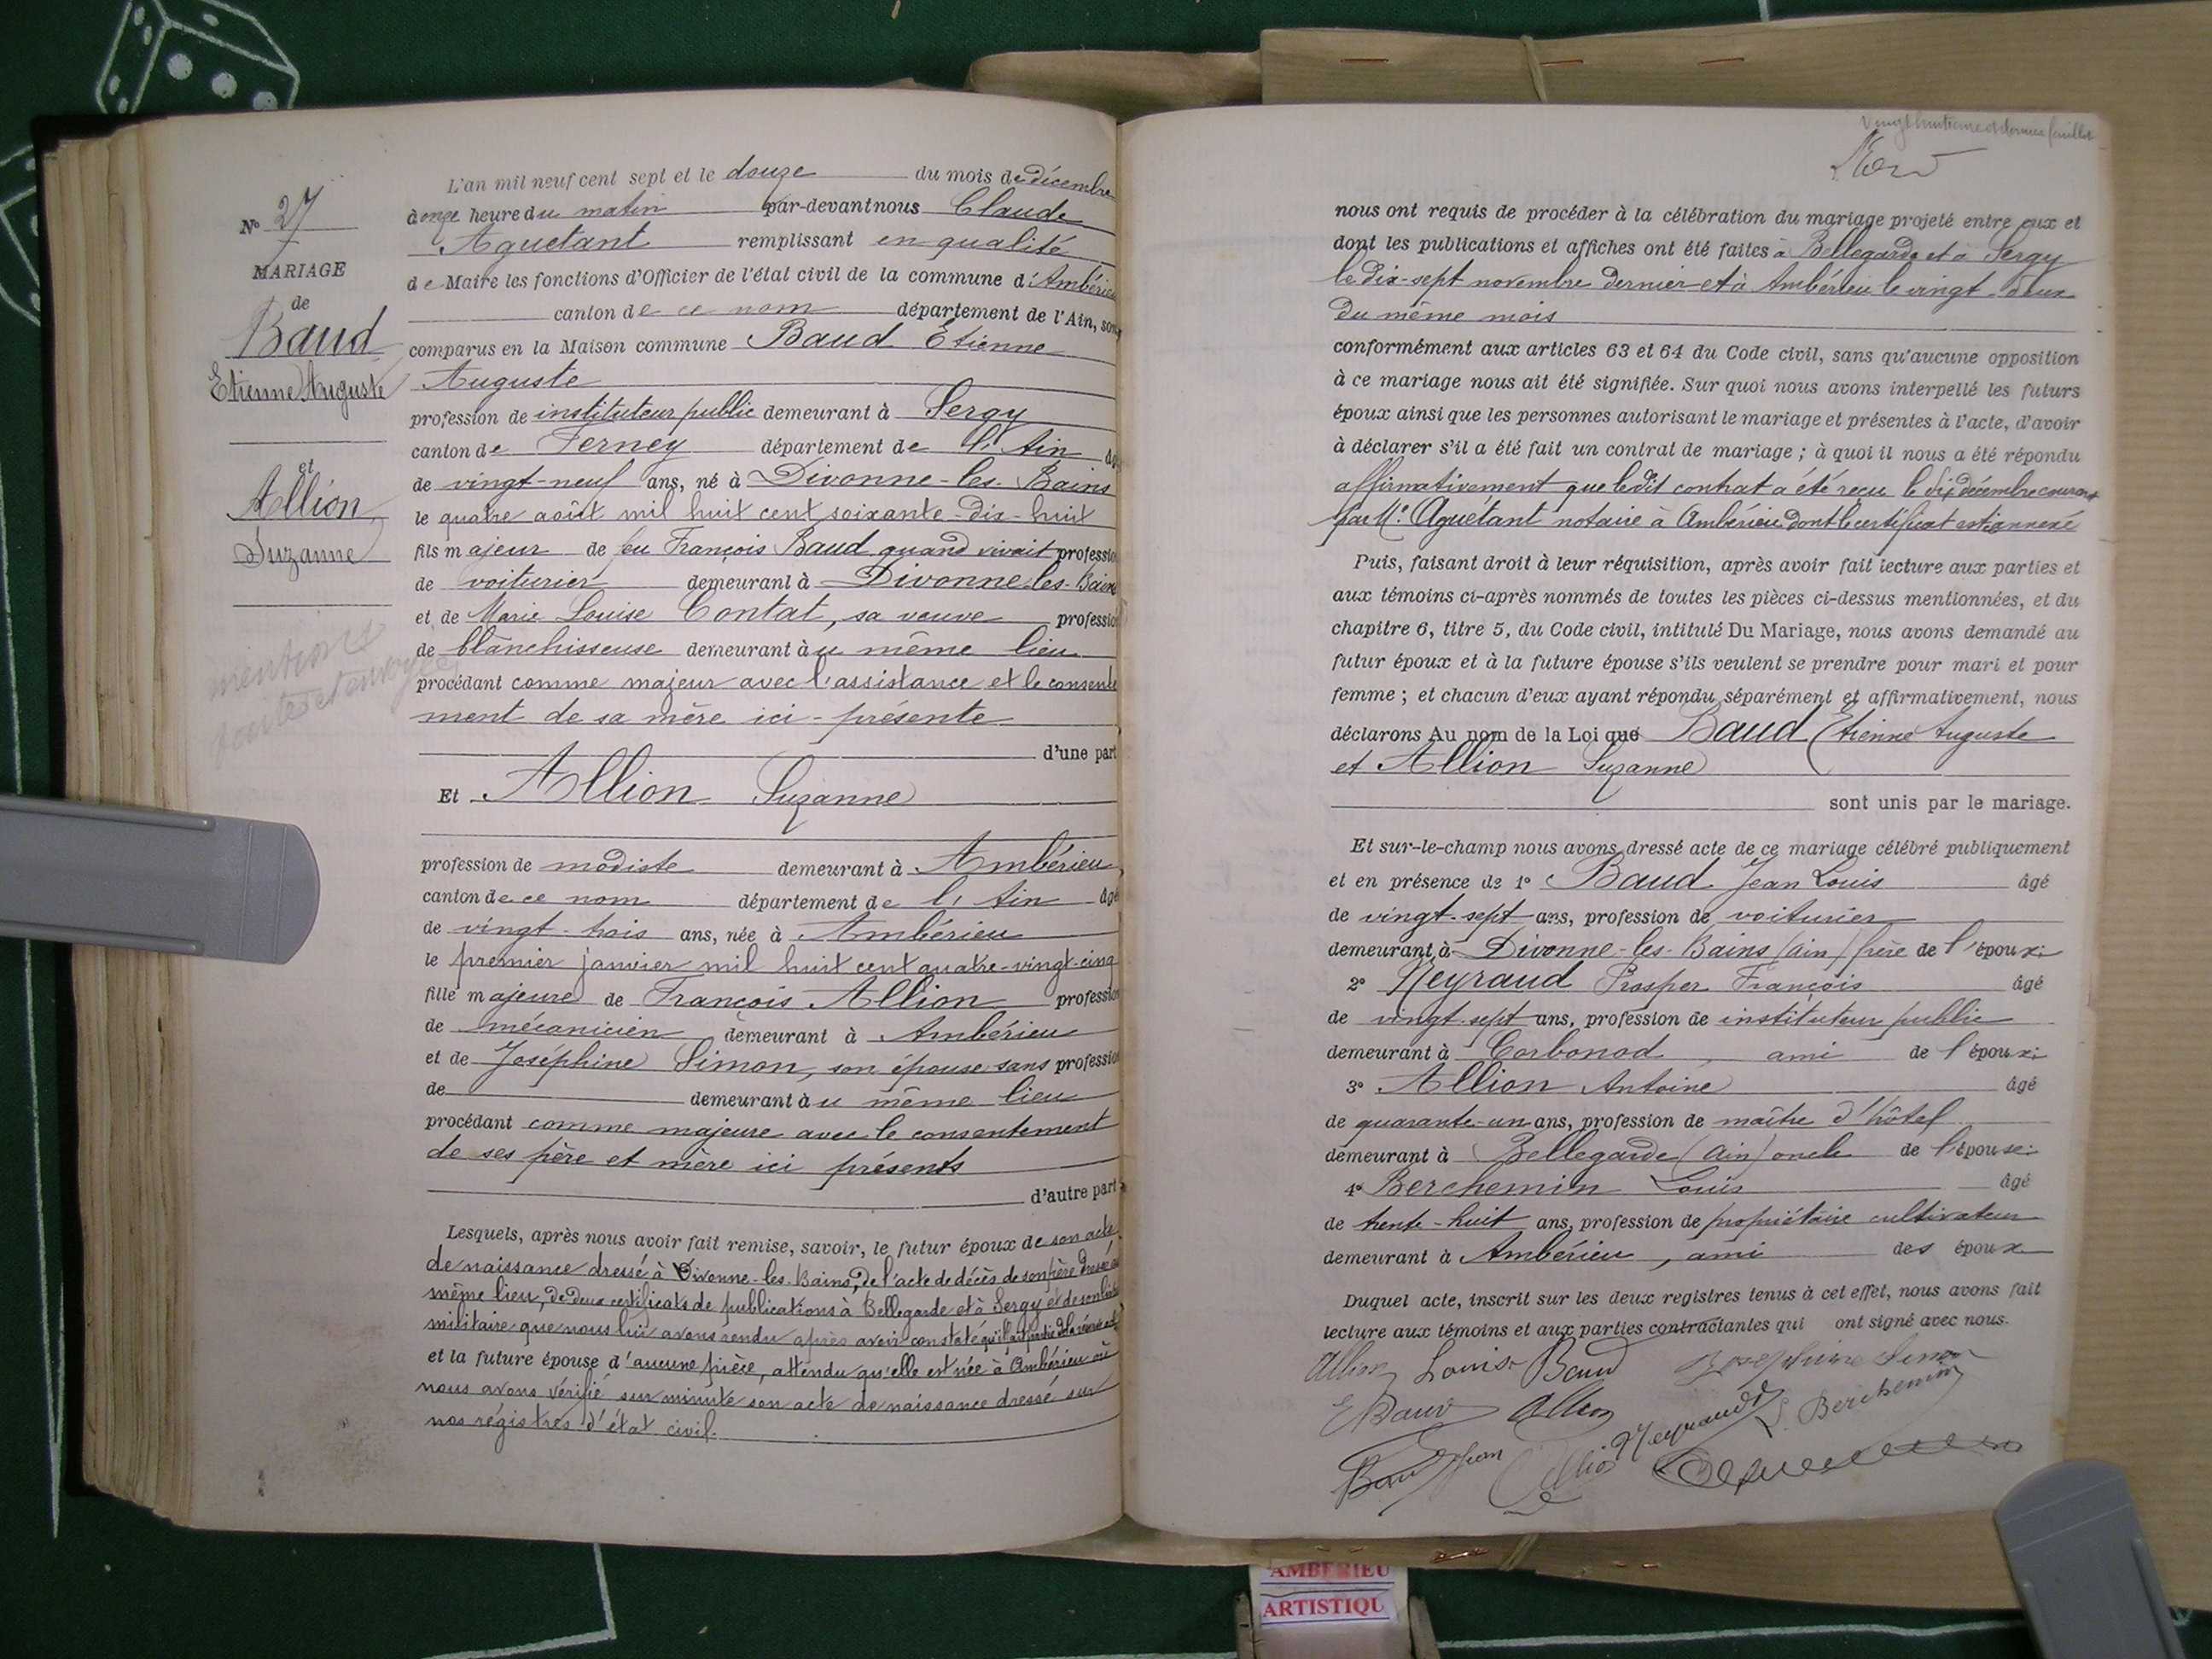 No 27
MARIAGE
de
Baud
Etienne Auguste
et
Allion
Suzanne
mention
L'an mil neuf cent sept et le douze du mois de décembre
à onze heure du matin par-devant nous Claude
Aguetant remplissant en qualité
de Maire les fonctions d'Officier de l'état civil de la commune d'Ambérieu
canton de ce nom département de l'Ain, sont
comparus en la Maison commune Baud Etienne
Auguste
profession de instituteur public demeurant à Sergy
canton de Ferney département de l'Ain âgé
de vingt-neuf ans, né à Divonne-les-Bains
le quatre août mil huit cent soixante-dix-huit
fils majeur de feu François Baud quand vivait profession
de voiturier demeurant à Divonne-les-Bains
et de Marie Louise Contat, sa veuve profession
de blanchisseuse demeurant à u même lieu
procédant comme majeur avec l'assistance et le consente
ment de sa mère ici-présente
d'une part
Et Allion Suzanne
profession de modiste demeurant à Ambérieu
canton de ce nom département de l'Ain âgé
de vingt-trois ans, née à Ambérieu
le premier janvier mil huit cent quatre-vingt-cinq
fille majeure de François Allion profession
de mécanicien demeurant à Ambérieu
et de Joséphine Simon, son épouse sans profession
de demeurant à u même lieu
procédant comme majeure avec le consentement
de ses père et mère ici présents
d'autre part
Lesquels, après nous avoir fait remise, savoir, le futur époux de son acte
de naissance dressé à Divonne-les-Bains, de l'acte de décès de son père dressé au
même lieu, de deux certificats de publications à Bellegarde et à Sergy et de son livret
militaire que nous lui avons rendu après avoir constaté qu'il
et la future épouse d'aucune pièce, attendu qu'elle est née à Ambérieu où
nous avons vérifié sur minute son acte de naissance dressé sur
nos régistres d'état civil.
vingt huitième et dernier feuillet
nous ont requis de procéder à la célébration du mariage projeté entre eux et
dont les publications et affiches ont été faites à Bellegarde et à Sergy
le dix-sept novembre dernier et à Ambérieu le vingt-deux
du même mois
conformément aux articles 63 et 64 du Code civil, sans qu'aucune opposition
à ce mariage nous ait été signifiée. Sur quoi nous avons interpellé les futurs
époux ainsi que les personnes autorisant le mariage et présentes à l'acte, d'avoir
à déclarer s'il a été fait un contrat de mariage ; à quoi il nous a été répondu
affirmativement que ledit contrat a été reçu le dix décembre courant
par Me Aguétant notaire à Ambérieu dont le certificat est annexé
Puis, faisant droit à leur réquisition, après avoir fait lecture aux parties et
aux témoins ci-après nommés de toutes les pièces ci-dessus mentionnées, et du
chapitre 6, titre 5, du Code civil, intitulé Du Mariage, nous avons demandé au
futur époux et à la future épouse s'ils veulent se prendre pour mari et pour
femme ; et chacun d'eux ayant répondu séparément et affirmativement, nous
déclarons Au nom de la Loi que Baud Etienne Auguste
et Allion Suzanne
sont unis par le mariage.
Et sur-le-champ nous avons dressé acte de ce mariage célébré publiquement
et en présence de 1° Baud Jean Louis âgé
de vingt-sept ans, profession de voiturier
demeurant à Divonne-les-Bains (Ain) frère de l'époux;
2° Neyraud Prosper François âgé
de vingt-sept ans, profession de instituteur public
demeurant à Corbonod, ami de l'époux;
3° Allion Antoine âgé
de quarante-un ans, profession de maître d'hôtel
demeurant à Bellegarde (Ain) oncle de l'épouse;
4° Berchemin Louis âgé
de trente-huit ans, profession de propriétaire cultivateur
demeurant à Ambérieu, ami des époux
Duquel acte, inscrit sur les deux registres tenus à cet effet, nous avons fait
lecture aux témoins et aux parties contractantes qui ont signé avec nous.
Allion Louise Baud Josephine Simon
E Baud Allion Neyraud L. Berchemin
Baud Jean Allion
AMBERIEU
ARTISTIQU